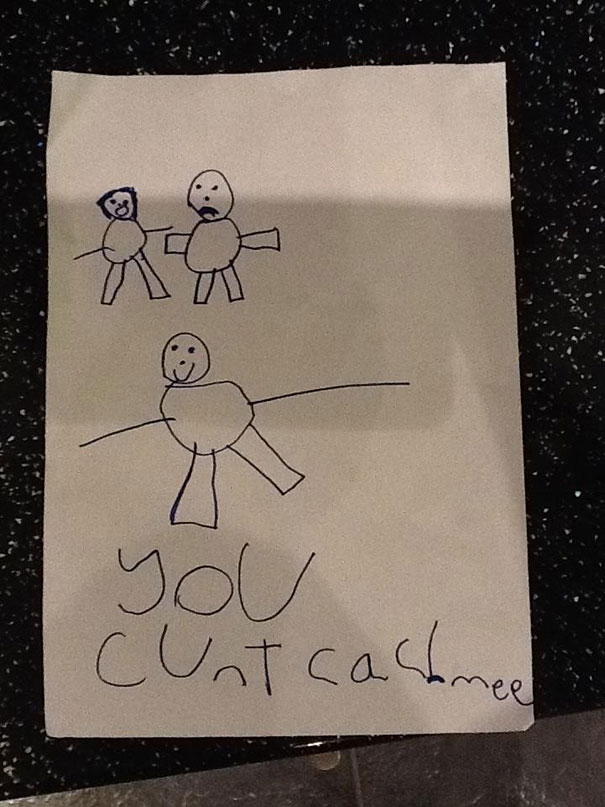 YOU
CUnT cachmee